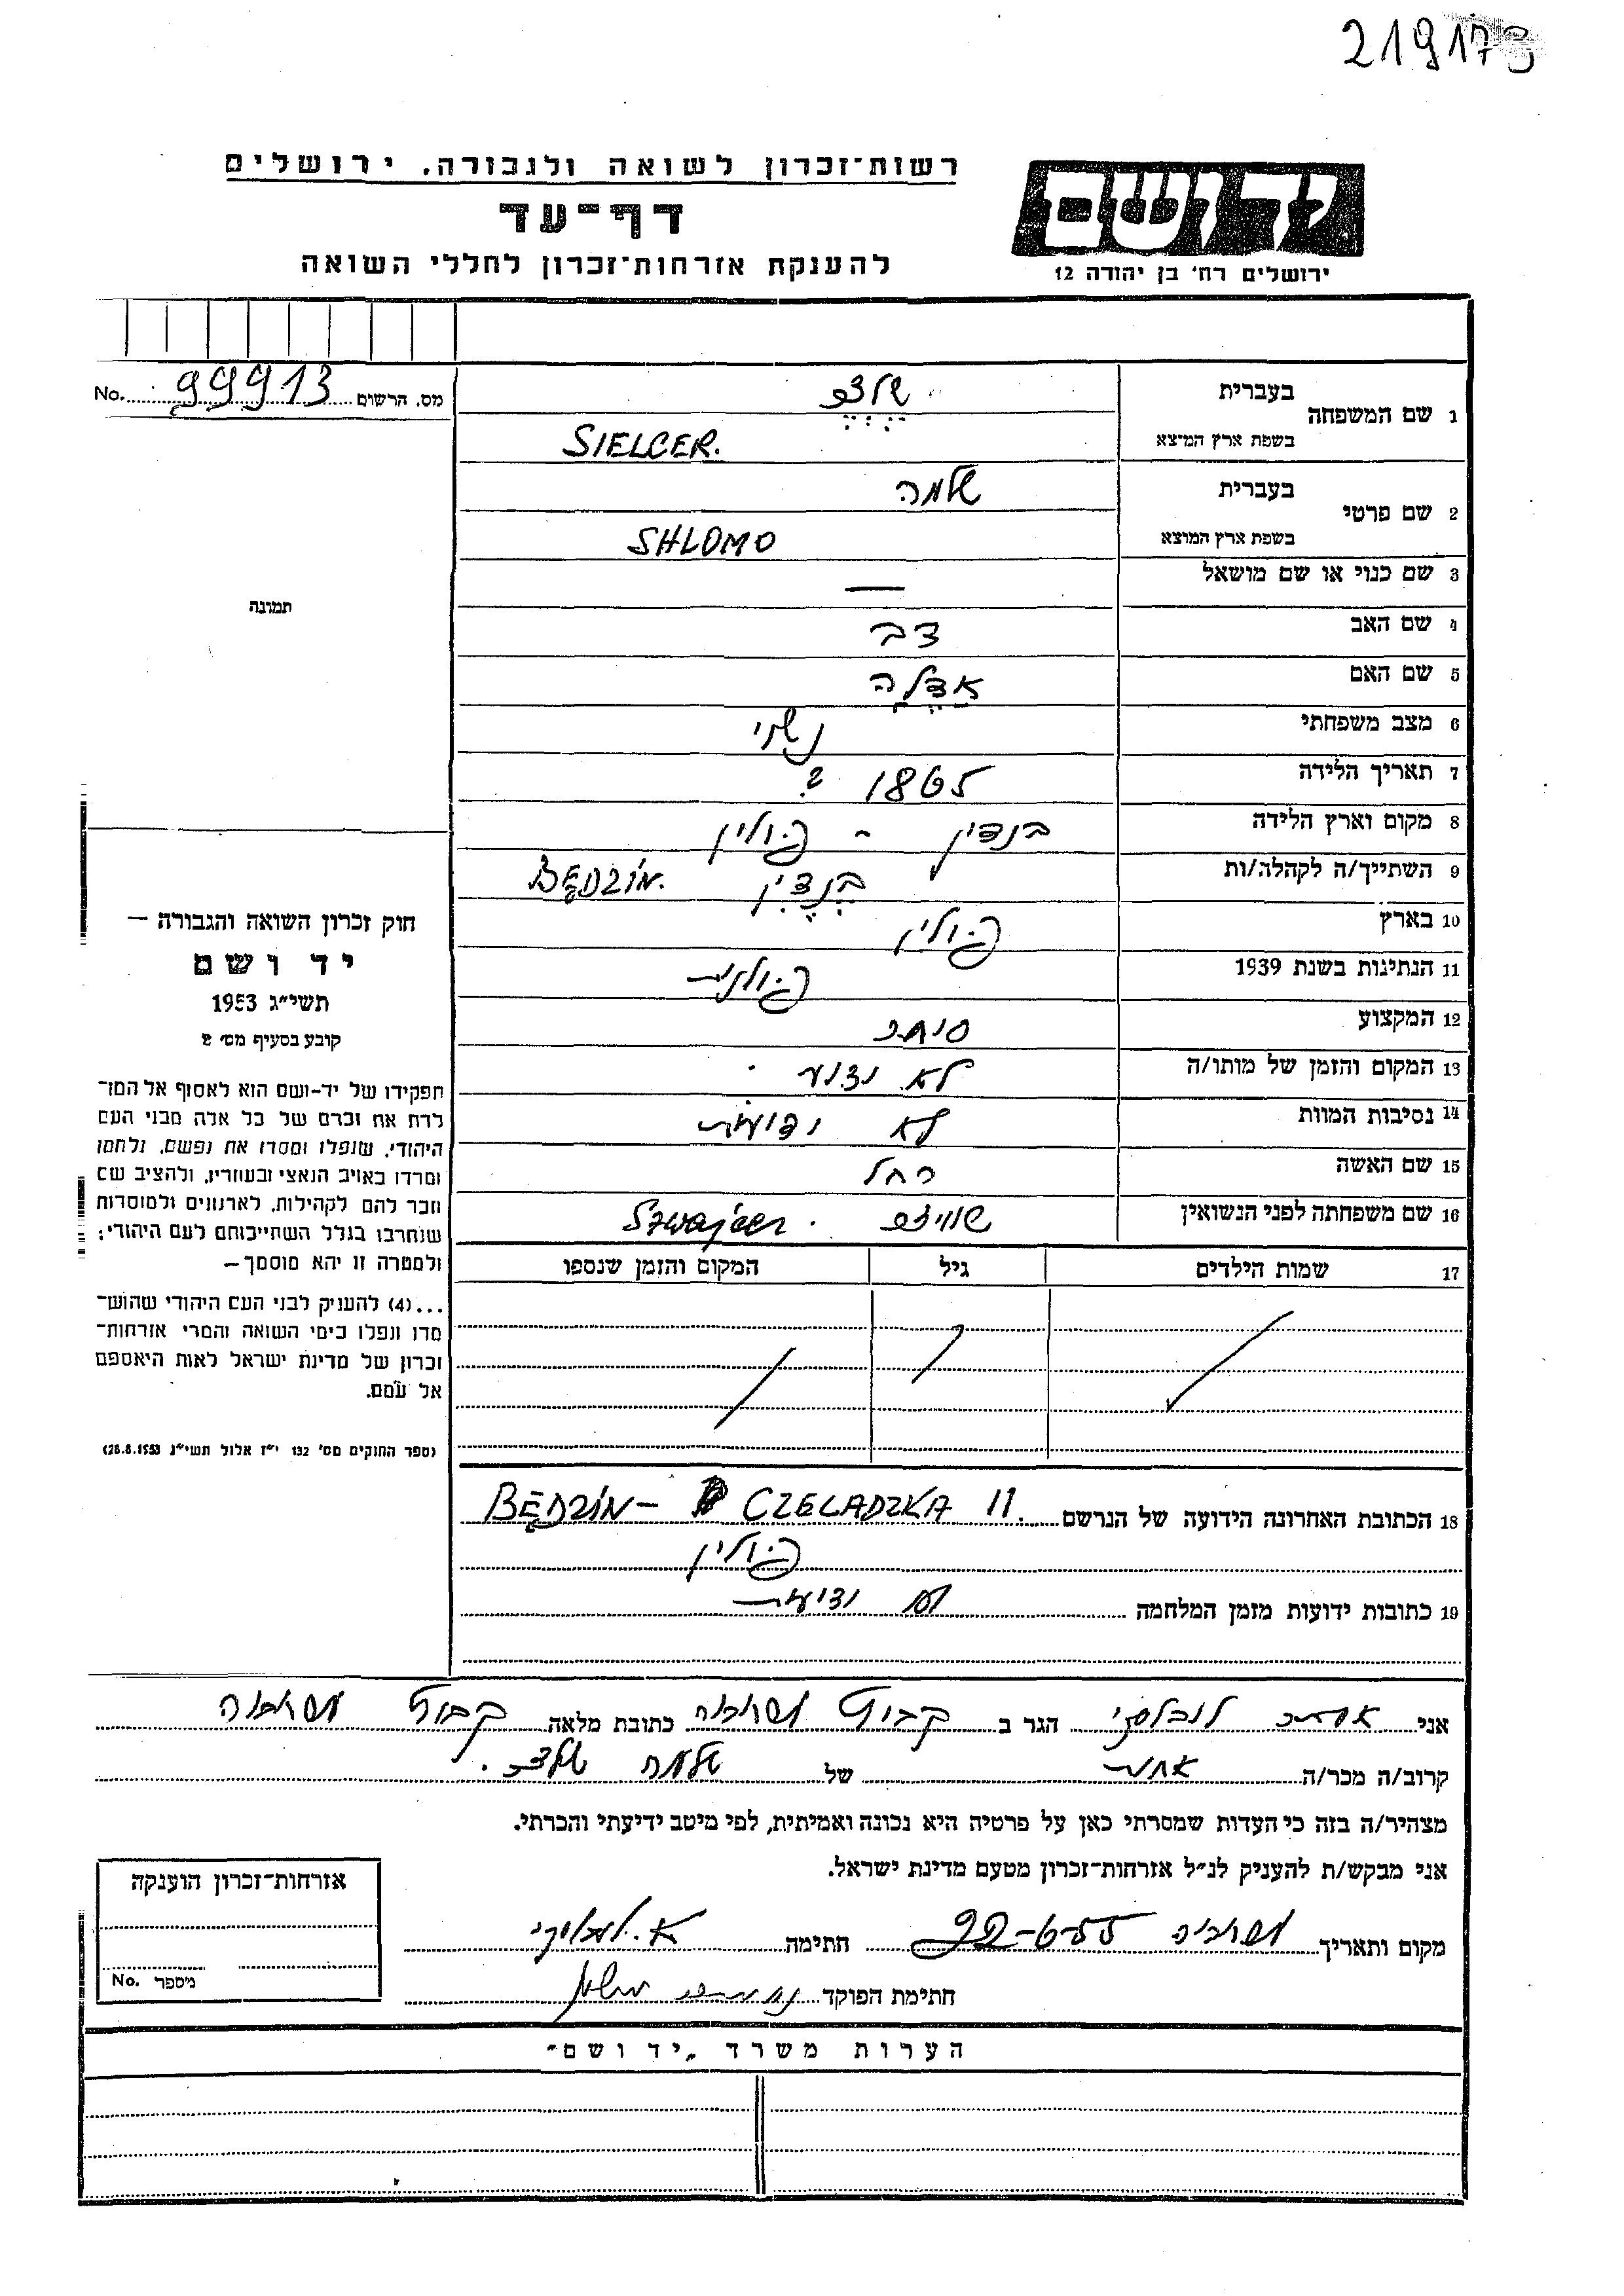 219173
רשות־זכרון לשואה ולגבורה. ירושלים
דף־עד
להענקת אזרחות־זכרון לחללי השואה
יד ושם
ירושלים רח' בן יהודה 12
מס. הרשום 99913 No.
1 שם המשפחה בעברית שלצר
בשפת ארץ המוצא SIELCER.
2 שם פרטי בעברית שלמה
בשפת ארץ המוצא SHLOMO
3 שם כנוי או שם מושאל —
4 שם האב דב
5 שם האם אדלה
6 מצב משפחתי נשוי
7 תאריך הלידה 1865 ?
8 מקום וארץ הלידה בנדין - פולין
9 השתייך/ה לקהלה/ות בנדין BĘDZIN.
10 בארץ פולין
11 הנתינות בשנת 1939 פולנית
12 המקצוע סוחר
13 המקום והזמן של מותו/ה לא ידוע
14 נסיבות המוות לא ידועות
15 שם האשה רחל
16 שם משפחתה לפני הנשואין שוויצר Szwajcer
17 שמות הילדים גיל המקום והזמן שנספו
18 הכתובת האחרונה הידועה של הנרשם BĘDZIN – CZELADZKA 11.
פולין
19 כתובות ידועות מזמן המלחמה לא ידועות
תמונה
חוק זכרון השואה והגבורה —
יד ושם
תשי״ג 1953
קובע בסעיף מס' 2
תפקידו של יד-ושם הוא לאסוף אל המו־
לדת את זכרם של כל אלה מבני העם
היהודי, שנפלו ומסרו את נפשם, נלחמו
ומרדו באויב הנאצי ובעוזריו, ולהציב שם
וזכר להם לקהילות, לארגונים ולמוסדות
שנחרבו בגלל השתייכותם לעם היהודי;
ולמטרה זו יהא מוסמך—
...(4) להעניק לבני העם היהודי שהוש־
מדו ונפלו בימי השואה והמרי אזרחות־
זכרון של מדינת ישראל לאות היאספם
אל עמם.
(ספר החוקים מס' 132 י״ז אלול תשי״ג 28.8.1953)
אני אסתר הגר ב קבוץ כתובת מלאה קבוץ
קרוב/ה מכר/ה של שלמה שלצר.
מצהיר/ה בזה כי העדות שמסרתי כאן על פרטיה היא נכונה ואמיתית, לפי מיטב ידיעתי והכרתי.
אני מבקש/ת להעניק לנ״ל אזרחות־זכרון מטעם מדינת ישראל.
מקום ותאריך 22-6-55 חתימה
חתימת הפוקד
אזרחות־זכרון הוענקה
מיספר No.
הערות משרד „יד ושם״